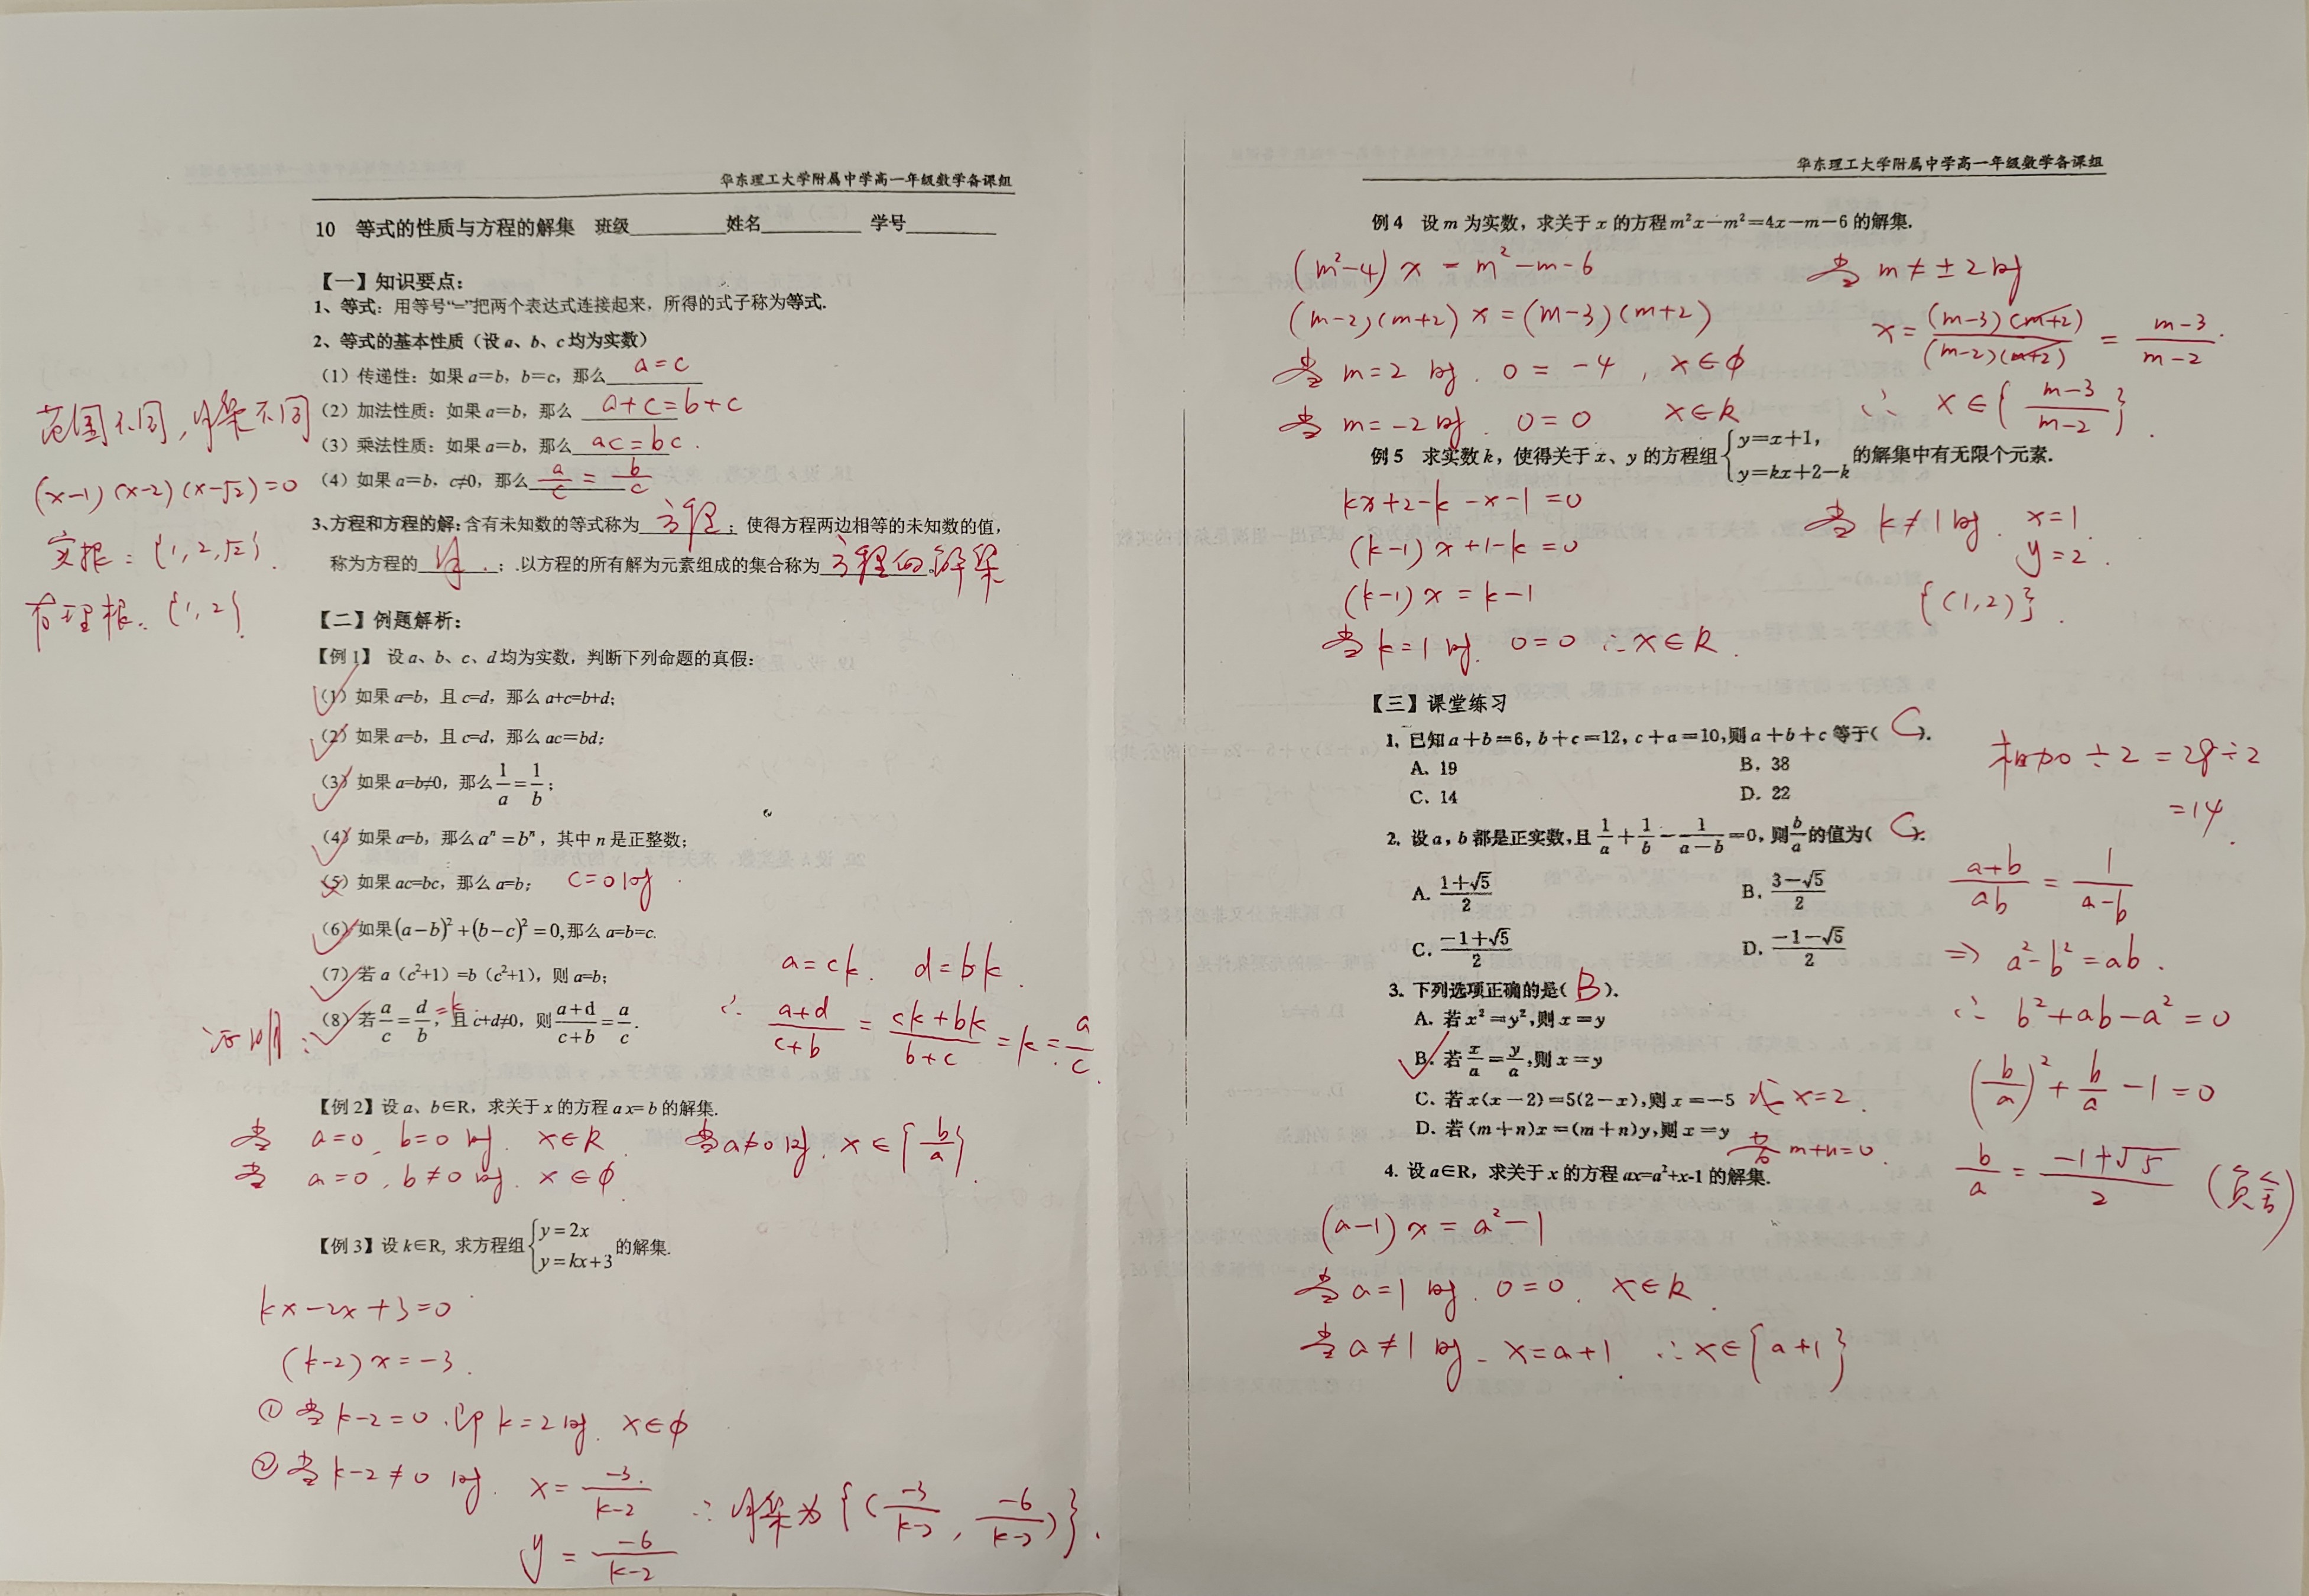 华东理工大学附属中学高一年级数学备课组
10 等式的性质与方程的解集 班级________姓名________ 学号________
【一】知识要点:
1、等式:用等号“=”把两个表达式连接起来,所得的式子称为等式.
2、等式的基本性质(设 a、b、c 均为实数)
(1)传递性:如果 a=b,b=c,那么 a=c
(2)加法性质:如果 a=b,那么 a+c=b+c
(3)乘法性质:如果 a=b,那么 ac=bc.
(4)如果 a=b,c≠0,那么 a/c = b/c
范围不同,解集不同
(x-1)(x-2)(x-√2)=0
实根:{1,2,√2}.
有理根.{1,2}
3、方程和方程的解:含有未知数的等式称为 方程 ;使得方程两边相等的未知数的值,
称为方程的 解. ;.以方程的所有解为元素组成的集合称为 方程的解集 。
【二】例题解析:
【例1】 设 a、b、c、d 均为实数,判断下列命题的真假:
(1)如果 a=b,且 c=d,那么 a+c=b+d; ✓
(2)如果 a=b,且 c=d,那么 ac=bd; ✓
(3)如果 a=b≠0,那么 1/a = 1/b; ✓
(4)如果 a=b,那么 aⁿ=bⁿ,其中 n 是正整数; ✓
(5)如果 ac=bc,那么 a=b; × c=0时.
(6)如果(a-b)²+(b-c)²=0,那么 a=b=c. ✓
(7)若 a(c²+1)=b(c²+1),则 a=b; ✓
(8)若 a/c = d/b =k,且 c+d≠0,则 (a+d)/(c+b) = a/c. ✓
证明:
a=ck. d=bk.
∴ (a+d)/(c+b) = (ck+bk)/(b+c) = k = a/c.
【例2】设 a、b∈R,求关于 x 的方程 a x= b 的解集.
当 a=0, b=0时. x∈R 当a≠0时. x∈{b/a}.
当 a=0, b≠0时. x∈∅.
【例3】设 k∈R, 求方程组 { y=2x
y=kx+3 的解集.
kx-2x+3=0
(k-2)x=-3.
① 当k-2=0.即k=2时. x∈∅
② 当k-2≠0时. x= -3/(k-2)
y = -6/(k-2)
∴ 解集为{(-3/(k-2), -6/(k-2))}.
华东理工大学附属中学高一年级数学备课组
例4 设 m 为实数,求关于 x 的方程 m²x-m²=4x-m-6 的解集.
(m²-4)x = m²-m-6
(m-2)(m+2)x=(m-3)(m+2)
当 m=2时. 0=-4, x∈∅
当 m=-2时. 0=0 x∈R
当 m≠±2时
x= (m-3)(m+2)/(m-2)(m+2) = (m-3)/(m-2).
∴ x∈{(m-3)/(m-2)}.
例5 求实数 k,使得关于 x、y 的方程组 { y=x+1,
y=kx+2-k 的解集中有无限个元素.
kx+2-k-x-1=0
(k-1)x+1-k=0
(k-1)x=k-1
当k=1时. 0=0 ∴x∈R.
当 k≠1时. x=1.
y=2.
{(1,2)}.
【三】课堂练习
1. 已知 a+b=6, b+c=12, c+a=10,则 a+b+c 等于( C ).
A. 19 B. 38
C. 14 D. 22
相加÷2=28÷2
=14.
2. 设 a,b 都是正实数,且 1/a + 1/b - 1/(a-b) =0,则 b/a 的值为( C ).
A. (1+√5)/2 B. (3-√5)/2
C. (-1+√5)/2 D. (-1-√5)/2
(a+b)/ab = 1/(a-b)
⇒ a²-b²=ab.
∴ b²+ab-a²=0
(b/a)²+b/a-1=0
b/a = (-1+√5)/2 (负舍)
3. 下列选项正确的是( B ).
A. 若 x²=y²,则 x=y
B. 若 x/a = y/a,则 x=y ✓
C. 若 x(x-2)=5(2-x),则 x=-5 或 x=2.
D. 若(m+n)x=(m+n)y,则 x=y 若 m+n=0.
4. 设 a∈R,求关于 x 的方程 ax=a²+x-1 的解集.
(a-1)x=a²-1
当a=1时. 0=0. x∈R.
当a≠1时. x=a+1. ∴x∈{a+1}